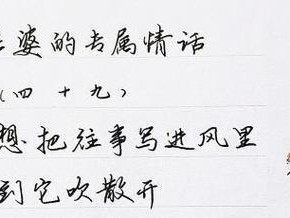 婆的专属情话
(四十九)
想把往事写进风里
到它吹散开